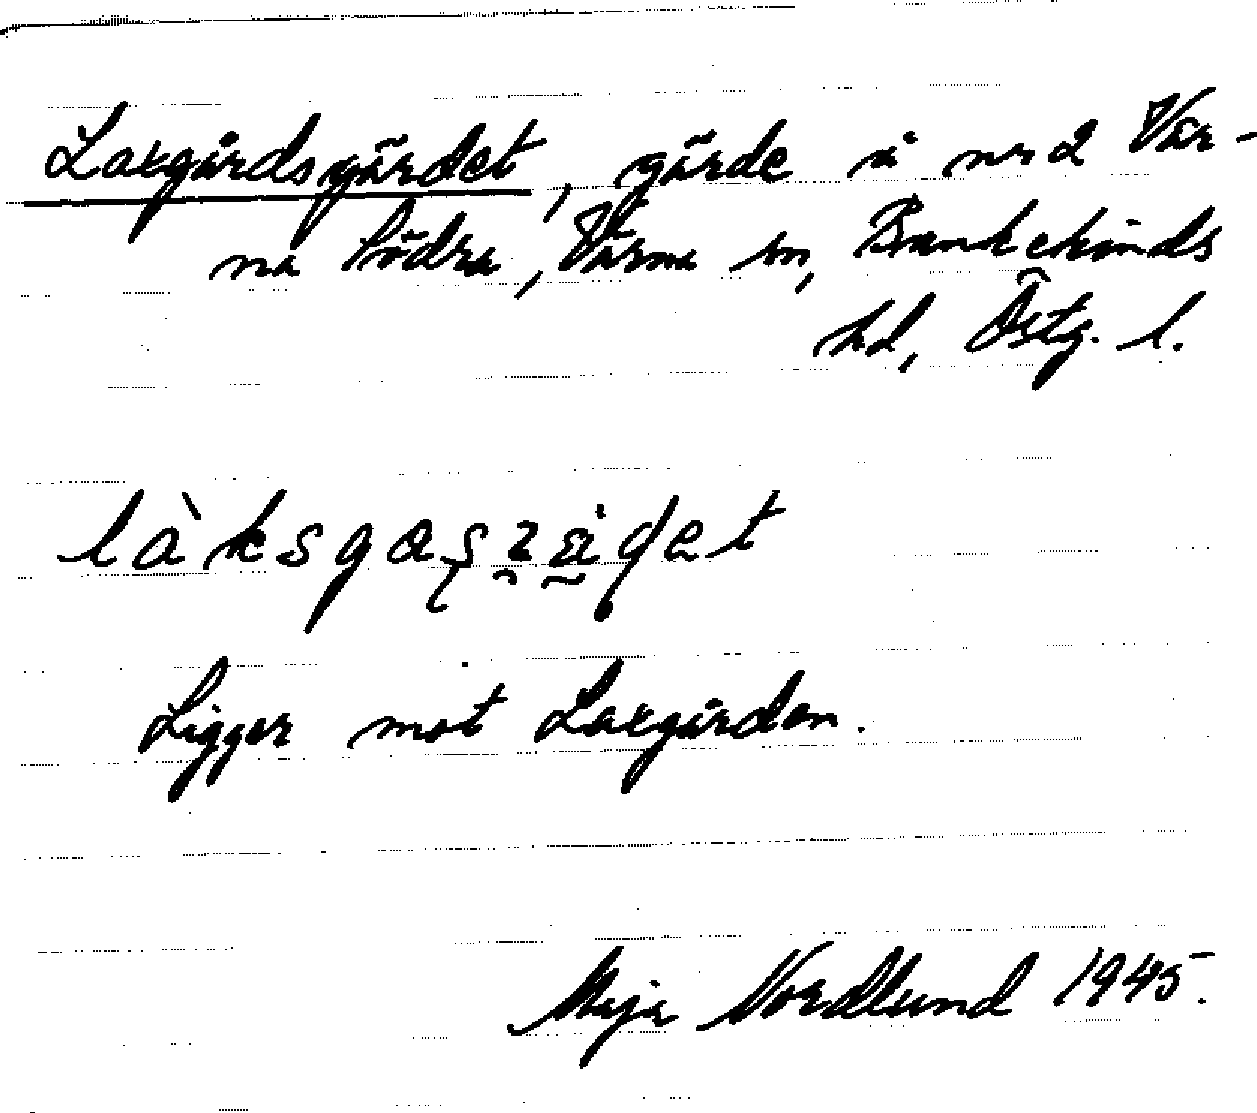 Laxgårdsgärdet, gärde å nr 2 Vär-
na Södra, Värna sn, Bankekinds
hd, Östg. l.
Ligger mot Laxgården.
Maja Nordlund 1945.